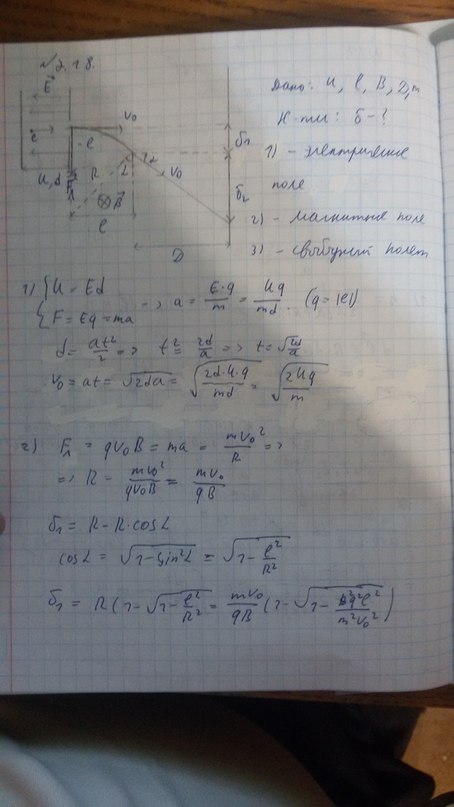 N 2.18.
Дано: U, l, B, D, m
Н-ти: δ-?
1) - электрическое
поле
2) - магнитное поле
3) - свободный полет
E
e
-e
V₀
R
α
V₀
U, d
B
l
D
δ₁
δ₂
1) { U = Ed
F = Eq = ma => a = E·q/m = Uq/md. (q = |e|)
d = at²/2 => t² = 2d/a => t = √(2d/a)
V₀ = at = √(2da) = √(2d·U·q/md) = √(2Uq/m)
2) Fл = qV₀B = ma = mV₀²/R =>
=> R = mV₀²/qV₀B = mV₀/qB
δ₁ = R - R·cosα
cosα = √(1-sin²α) = √(1-l²/R²)
δ₁ = R(1-√(1-l²/R²) = mV₀/qB (1-√(1-B²q²l²/m²V₀²))